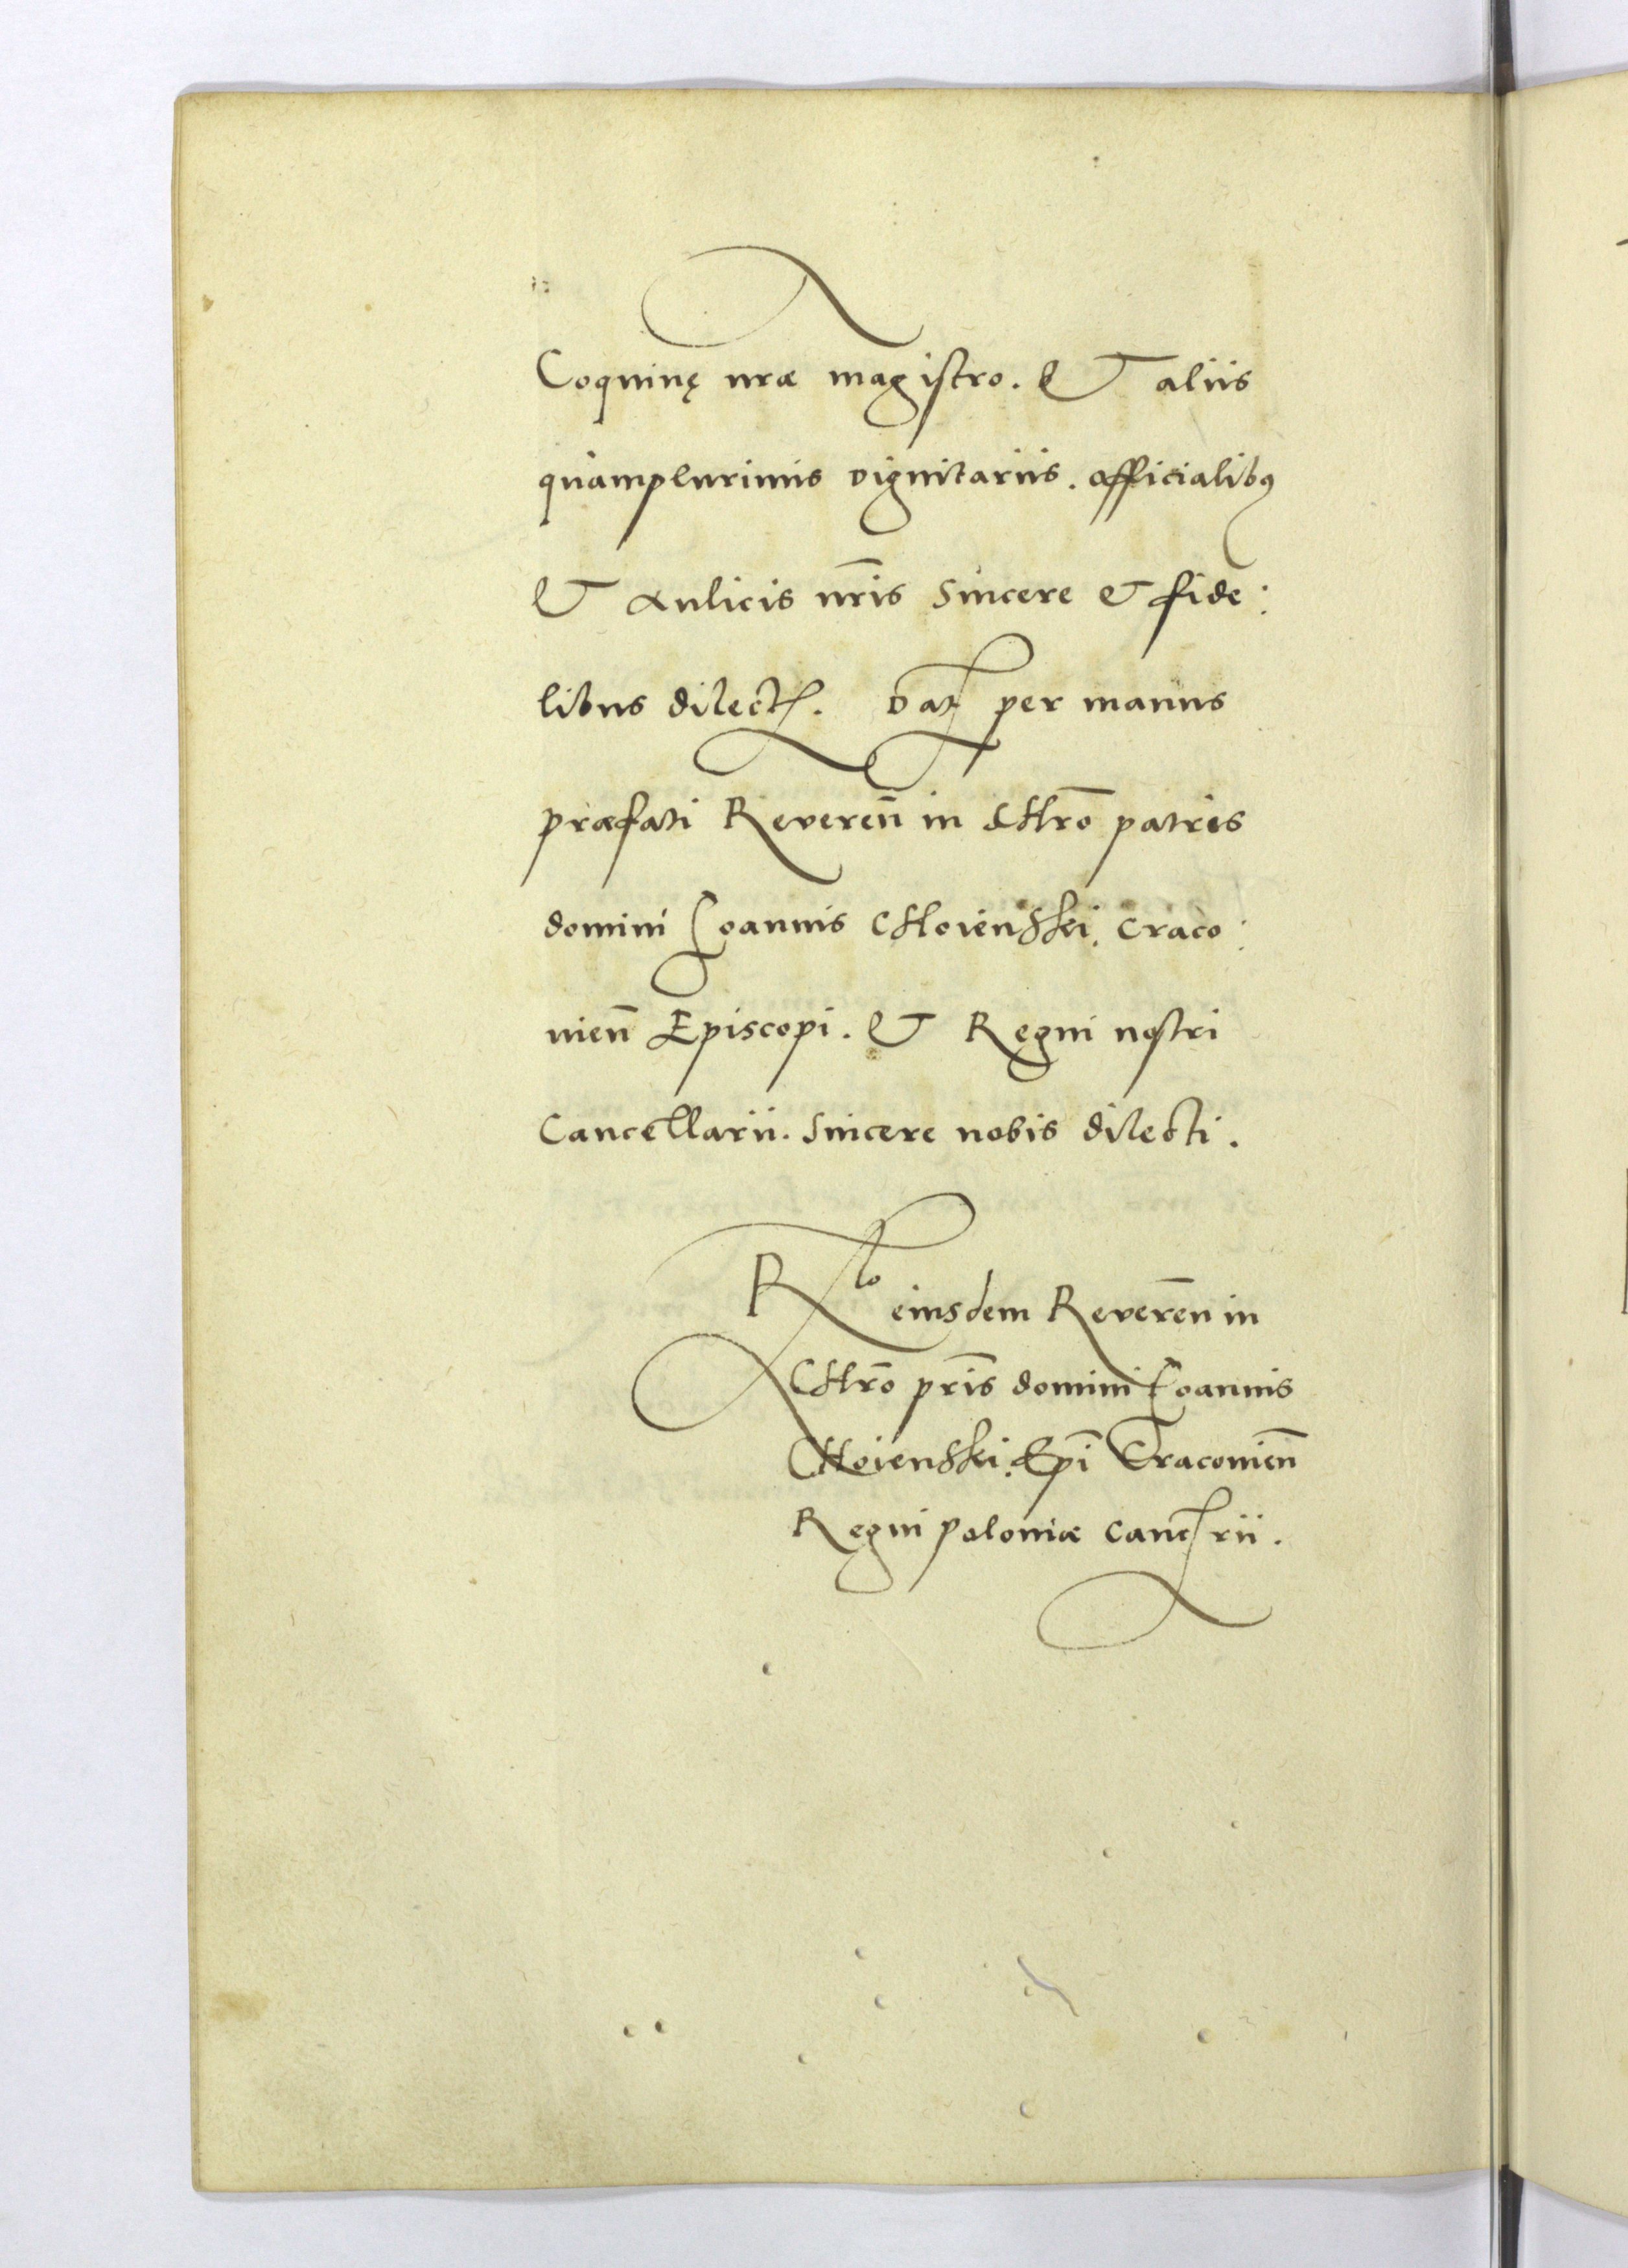 Coquinę nræ magistro. & aliis
quàmplurimis dignitariis. officialibꝰ
& Aulicis nr̄is sincere & fide:
libus dilect. Dat per manus
præfati Reveren̄ in Chrō patris
domini Ioannis Choienski. Craco:
nien̄ Episcopi. & Regni nostri
Cancellarii. sincere nobis dilecti.
Rlo eiusdem Reverēn in
Chrō pr̄is domini Ioannis
Choienski. Epī Cracouien̄
Regni poloniæ cancrii.